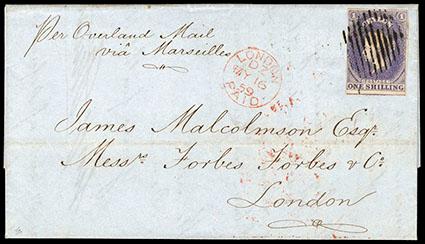 Per Overland Mail
via Marseilles
LONDON
DZ
MY 16
59
PAID
CEYLON
ONE SHILLING
James Malcolmson Esqr.
Messrs Forbes Forbes & Co.
London